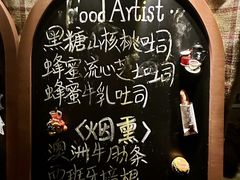 Food Artist
黑糖山核桃吐司
蜂蜜流心芝士吐司
蜂蜜牛乳吐司
<烟熏>
澳洲牛肋条
西班牙